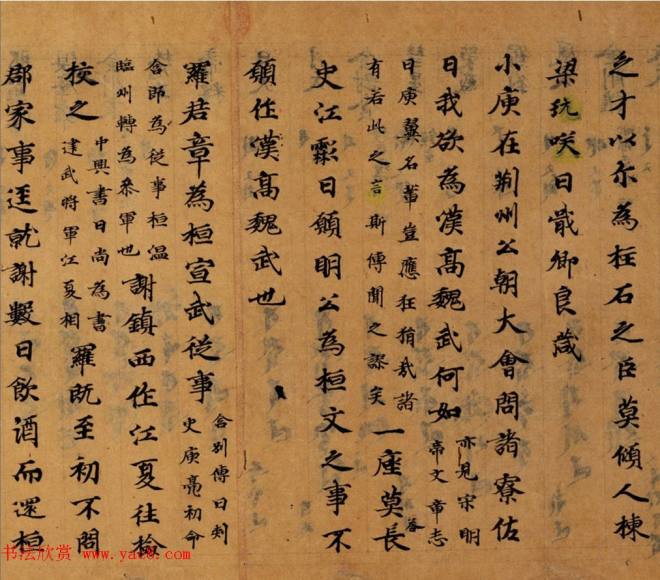 之才以尒為柱石之臣莫傾人棟
梁玩咲曰戢卿良葴
小庾在荊州公朝大會問諸寮佐
曰我欲為漢高魏武何如
亦見宋明
帝文章志
曰庾翼名輩豈應狂狷哉諸
有若此之言斯傳聞之謬矣
一座莫荅長
史江虨曰願明公為桓文之事不
願作漢高魏武也
羅君章為桓宣武從事
含別傳曰刾
史庾亮初命
含部為從事桓温
臨州轉為叅軍也
謝鎮西作江夏往撿
挍之
中興書曰尚為書
建武將軍江夏相
羅旣至初不問
郡家事逕就謝數日飲酒而還桓
书法欣赏 www.yac8.com